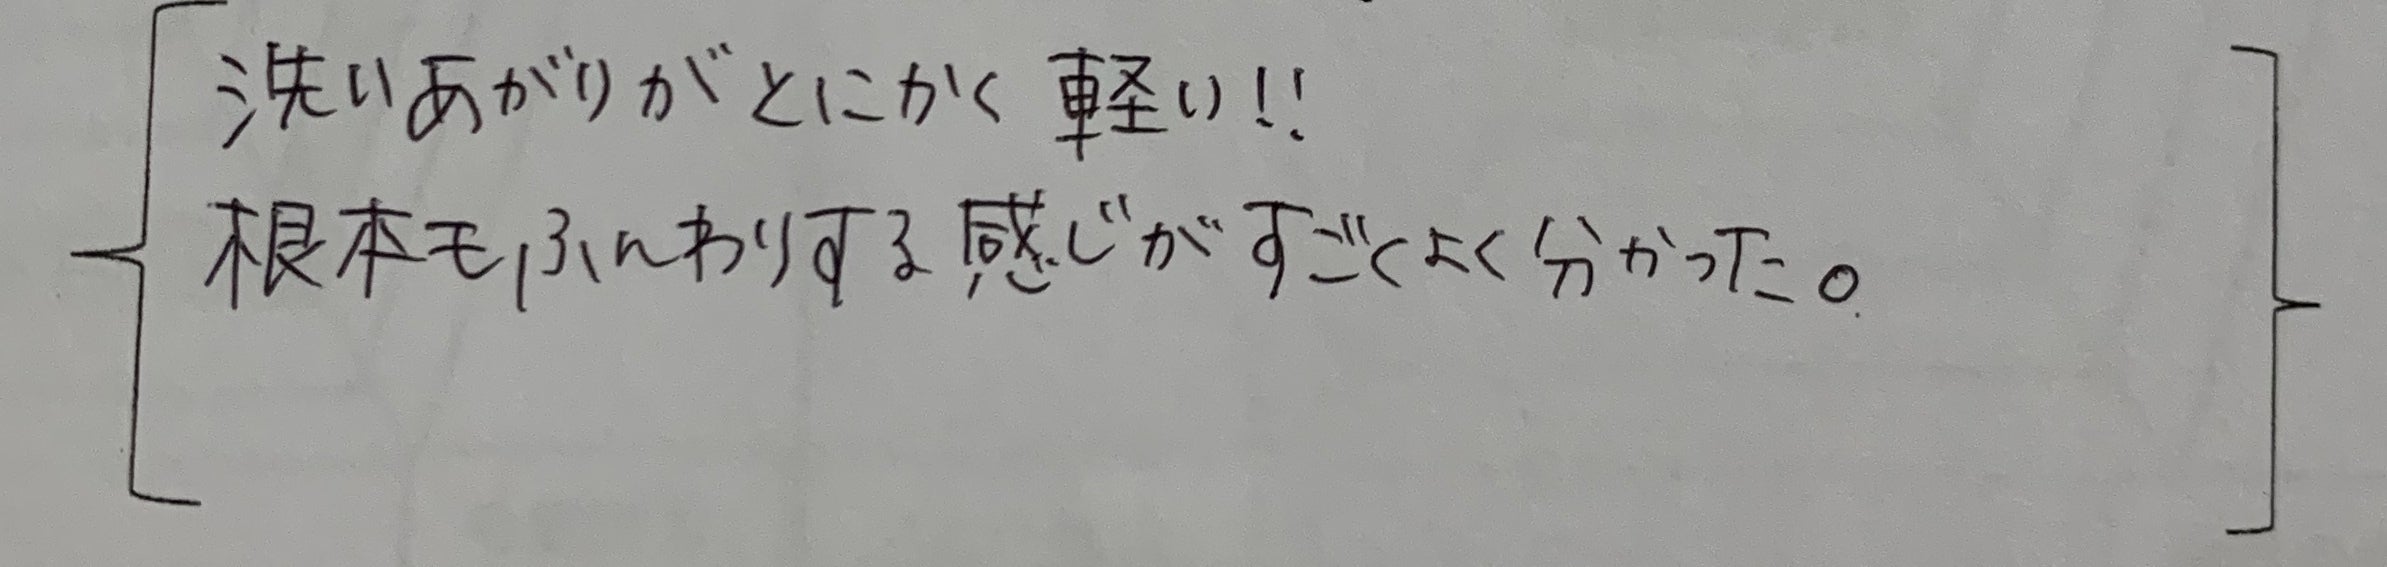 洗いあがりがとにかく軽い!!
根本もふんわりする感じがすごくよく分かった。